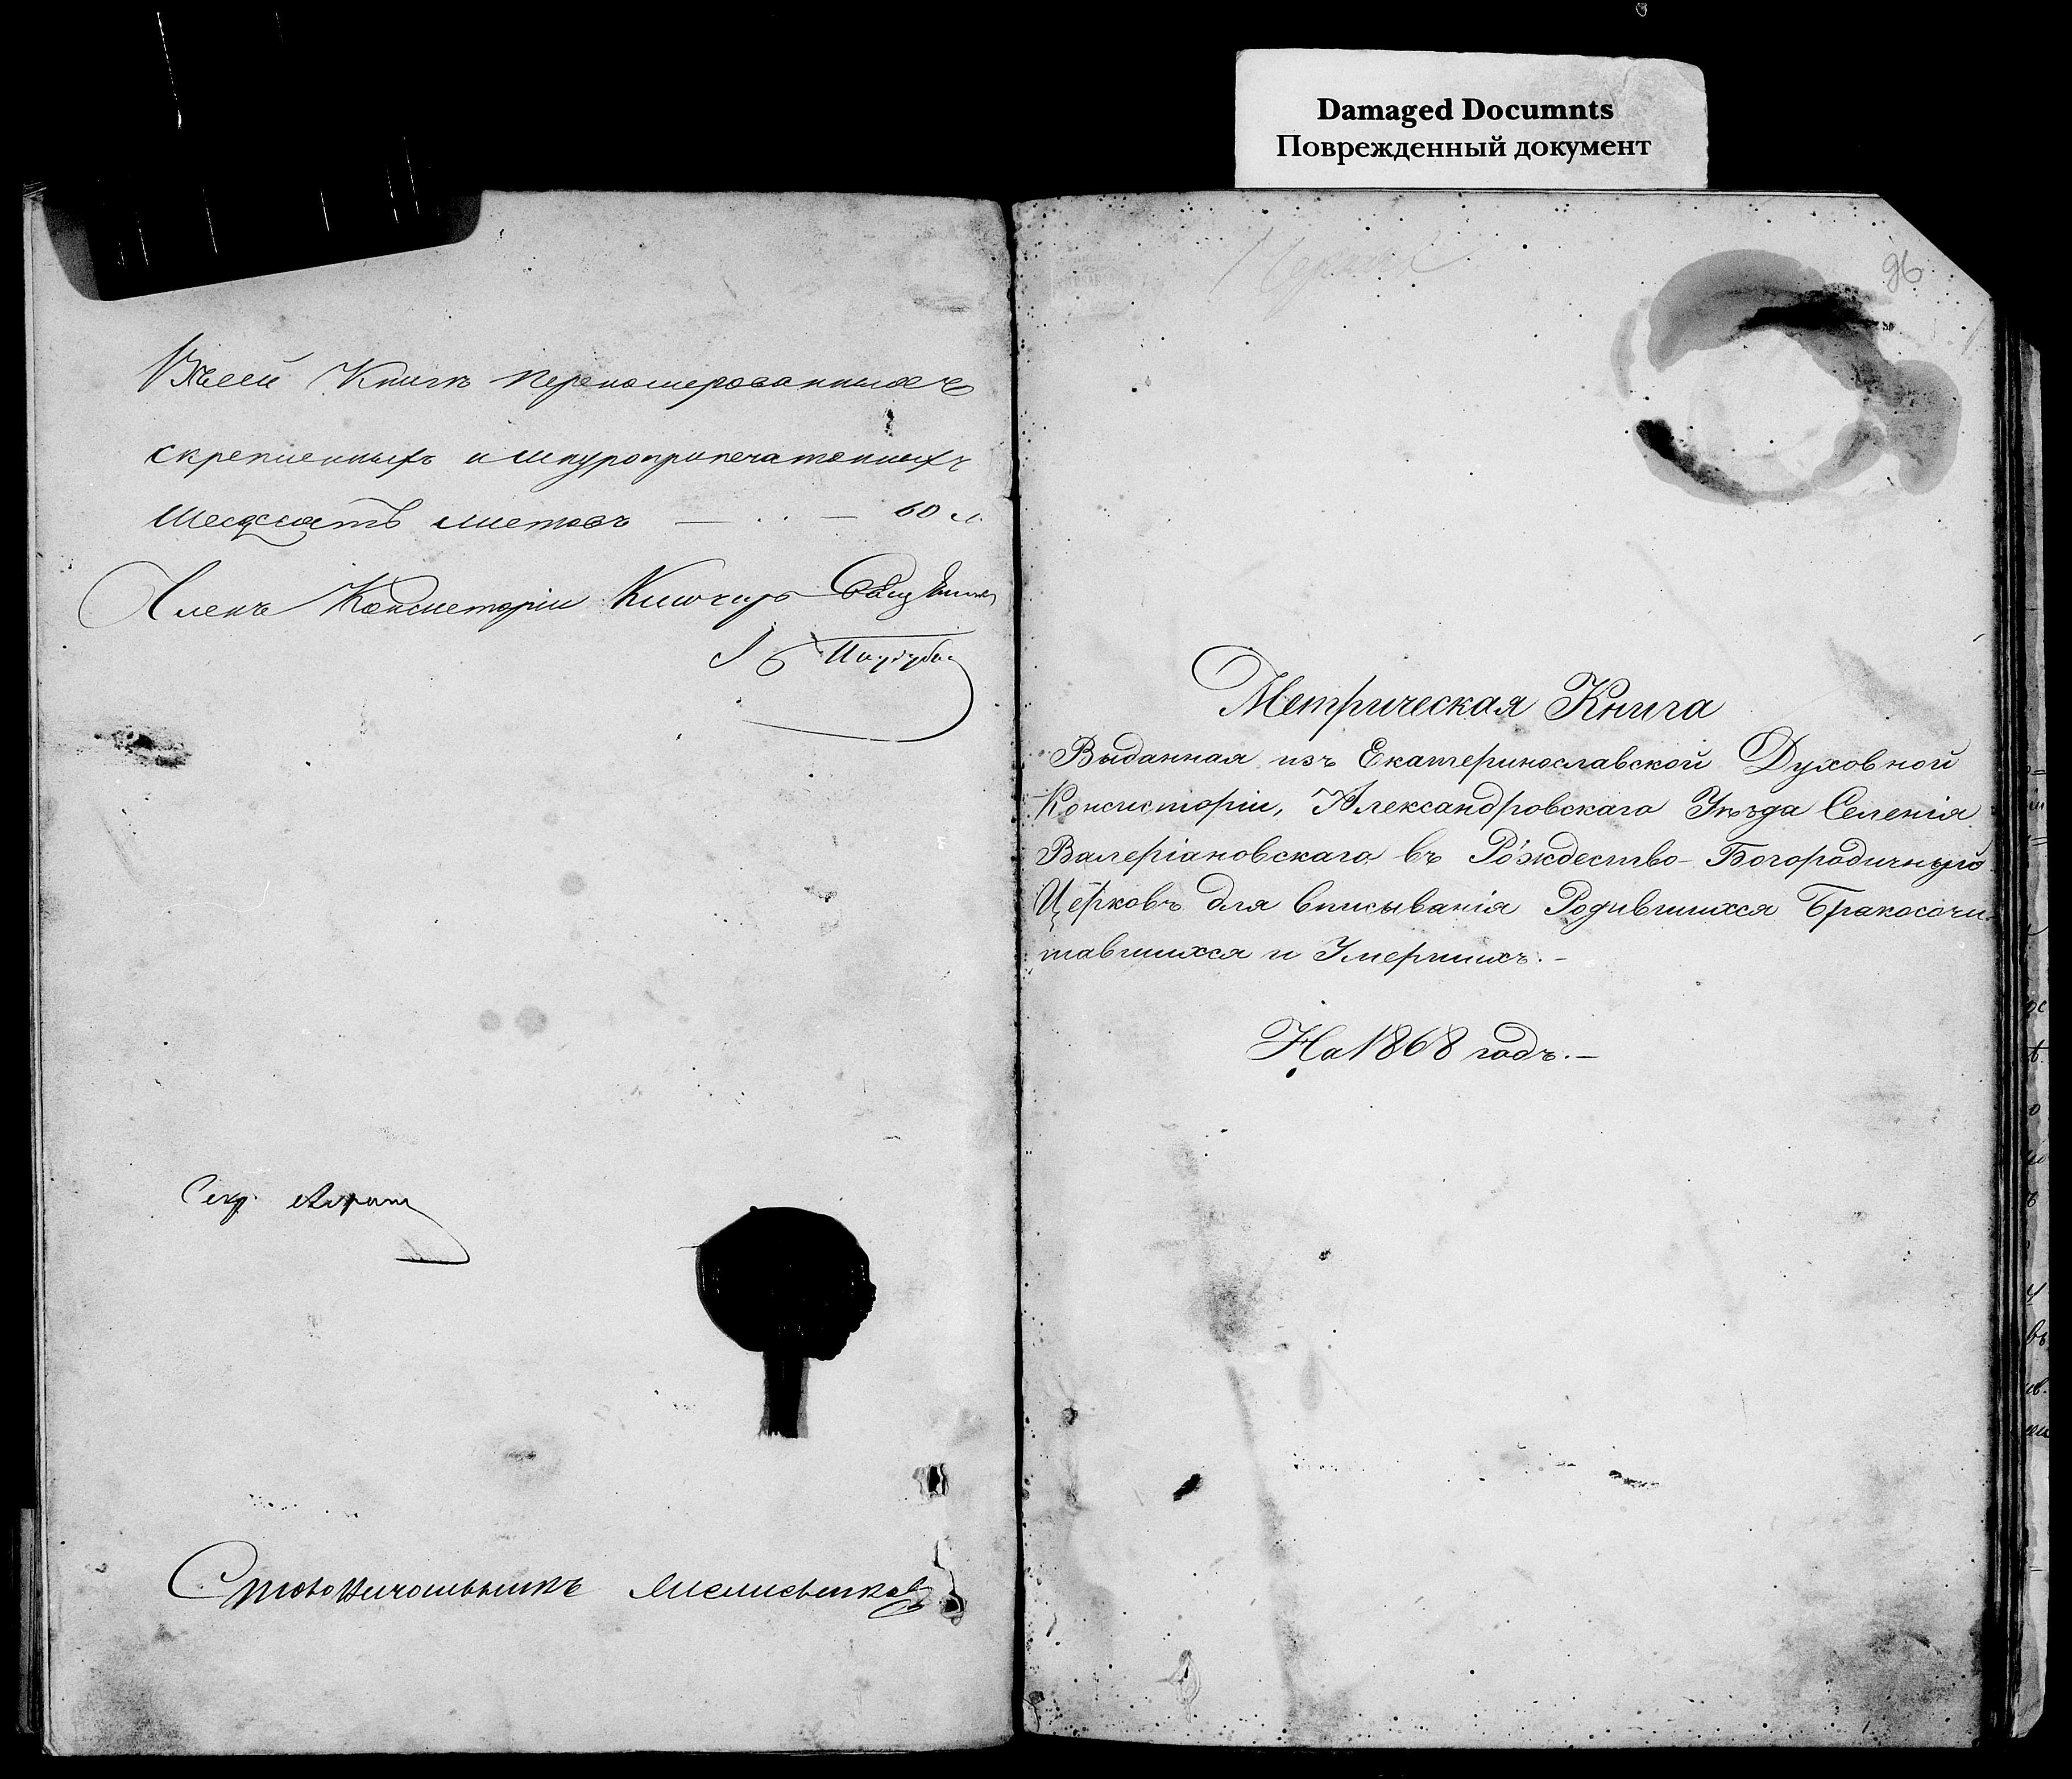 Damaged Documnts
Поврежденный документ
Въ сей Книгѣ переномерованныхъ
скрепленныхъ и шнуроприпечатанныхъ
шесдесятъ листовъ — . . — 60 л.
Членъ Консисторіи Ключарь Священникъ
Секр.
Столоначальникъ
96
Метрическая Книга
Выданная изъ Екатеринославской Духовной
Консисторіи, Александровскаго Уѣзда Селенія
Валеріановскаго въ Рождество-Богородичную
Церковь для вписыванія Родившихся Бракосочи-
тавшихся и Умершихъ. —
На 1868 годъ. —